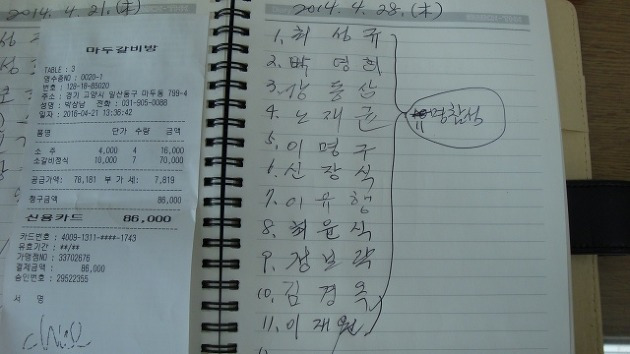 2014. 4. 21. (木)
마두갈비방
TABLE : 3
영수증NO : 0020-1
번호 : 128-18-85020
주소 : 경기 고양시 일산동구 마두동 799-4
성명 : 박삼남 전화 : 031-905-0088
일자 : 2016-04-21 13:36:42
품명 단가 수량 금액
소 주 4,000 4 16,000
소갈비정식 10,000 7 70,000
공급가액: 78,181 부 가 세: 7,819
청구금액 86,000
신용카드 86,000
카드번호 : 4009-1311-****-1743
유효기간 : **/**
가맹점NO : 33702676
결제금액 : 86,000
승인번호 : 29522355
서 명
2014. 4. 28. (木)
1. 최성규
2. 박영희
3. 강동삼
4. 노재균
5. 이명구
6. 신장식
7. 이유행
8. 최윤식
9. 장보락
10. 김경옥
11. 이재원
11명참석